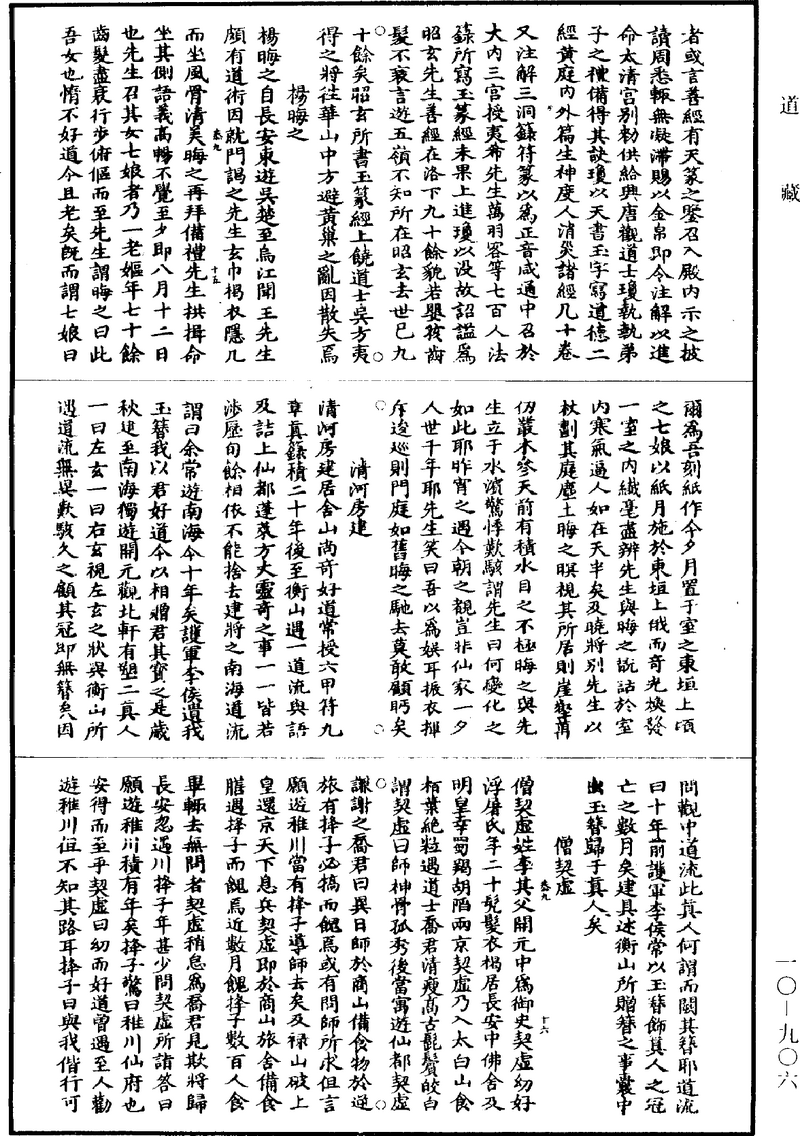 道藏
者或言善經有天篆之鑒召入殿内示之披
讀周悉輒無凝滯賜以金帛即令注解以進
命太清宮别勅供給典唐觀道士瓊執執弟
子之禮備得其訣瓊以天書玉字寫道德二
經黄庭内外篇生神度人消災諸經凡十卷
又注解三洞籙符篆以為正音咸通中召於
大内三宮授夷希先生萬羽客等七百人法
籙所寫玉篆經未果上進瓊以没故詔謚為
昭玄先生善經在洛下九十餘貌若嬰孩齒
髮不衰言遊五嶺不知所在昭玄去世已九
十餘矣昭玄所書玉篆經上饒道士吳方夷
得之將往華山中方避黄巢之亂因散失焉
楊晦之
楊晦之自長安東遊吳楚至烏江聞王先生
頗有道術因就門謁之先生玄巾褐衣隱几
而坐風骨清美晦之再拜備禮先生拱揖命
卷九 十五
坐其側語義高暢不覺至夕即八月十二日
也先生召其女七娘者乃一老嫗年七十餘
齒髮盡衰行步俯傴而至先生謂晦之曰此
吾女也惰不好道今且老矣旣而謂七娘曰
爾為吾刻紙作今夕月置于室之東垣上頃
之七娘以紙月施於東垣上俄而奇光煥發
一室之内纖毫盡辨先生與晦之飲話於室
内寒氣逼人如在天半矣及曉將别先生以
杖劃其庭塵土晦之瞑視其所居則崖壑萬
仞叢木參天前有積水目之不極晦之與先
生立于水濱驚悸歎駭謂先生曰何變化之
如此耶昨宵之遇今朝之覩豈非仙家一夕
人世千年耶先生笑曰吾以為娛耳振衣揮
斥逡巡則門庭如舊晦之馳去莫敢顧眄矣
清河房建
清河房建居含山尚奇好道常授六甲符九
章真籙積二十年後至衡山遇一道流與語
及詰上仙都蓬萊方丈靈奇之事一一皆若
涉歷旬餘相依不能捨去建將之南海道流
謂曰余常遊南海今十年矣護軍李侯遺我
玉簪我以君好道今以相贈君其寶之是歲
秋建至南海獨遊開元觀北軒有塑二真人
一曰左玄一曰右玄視左玄之狀與衡山所
遇道流無異歎駭久之顧其冠即無簪矣因
問觀中道流此真人何謂而闕其簪耶道流
曰十年前護軍李侯常以玉簪飾真人之冠
亡之數月矣建具述衡山所贈簪之事囊中
出玉簪歸于真人矣
卷九 十六
僧契虛
僧契虛姓李其父開元中為御史契虛幼好
浮屠氏年二十髡髮衣褐居長安中佛舍及
明皇幸蜀羯胡陷兩京契虛乃入太白山食
栢葉絶粒遇道士喬君清瘦高古髭鬢皎白
謂契虛曰師神骨孤秀後當寓遊仙都契虛
謙謝之喬君曰異日師於商山備食物於逆
旅有捀子必犒而餽焉或有問師所求但言
願遊稚川當有捀子導師去矣及禄山破上
皇還京天下息兵契虛即於商山旅舍備食
膳遇捀子而餽焉近數月餽捀子數百人食
畢輒去無問者契虛稍怠為喬君見欺將歸
長安忽遇川捀子年甚少問契虛所詣答曰
願遊稚川積有年矣捀子驚曰稚川仙府也
安得而至乎契虛曰幼而好道曾遇至人勸
遊稚川但不知其路耳捀子曰與我偕行可
一〇—九〇六